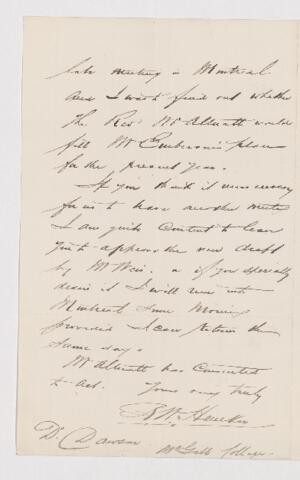 late meeting in Montreal
and I want to find out whether
the Revd Mr Allnatt would
fill Mr Emberson's place
for the present year.
If you think it unnecessary
for us to have another meeting
I am quite content to leave
you to approve the new draft
by Mr Weir. or if you specially
desire it I will run into
Montreal some Morning
provided I can return the
same day.
Mr Allnatt has Consented
to act. Yours very truly
R W Heneker
Dr Dawson. McGill College.